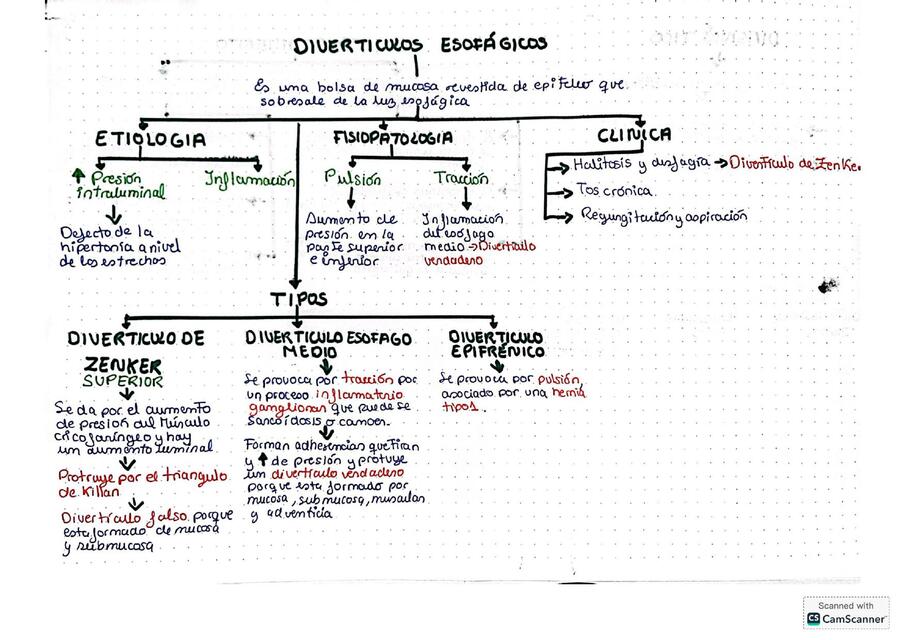 DIVERTICULOS ESOFÁGICOS
Es una bolsa de mucosa revestida de epitelio que
sobresale de la luz esofágica
ETIOLOGIA
FISIOPATOLOGIA
CLINICA
↑ Presión
intraluminal
Inflamación
Pulsión
Tracción
Halitosis y disfagia → Diverticulo de Zenker
Tos crónica.
Regurgitación y aspiración
Defecto de la
hipertonía a nivel
de los estrechos
Aumento de
presión en la
parte superior
e inferior
Inflamación
del esófago
medio → Diverticulo
verdadero
TIPOS
DIVERTICULO DE
ZENKER
SUPERIOR
Se da por el aumento
de presión del Músculo
cricofaríngeo y hay
un aumento luminal.
Protruye por el triangulo
de Killan
Diverticulo falso porque
esta formado de mucosa
y submucosa
DIVERTICULO ESOFAGO
MEDIO
Se provoca por tracción por
un proceso inflamatorio
ganglionar que puede se
Sarcoidosis o cancer.
Forman adherencias que tiran
y ↑ de presión y protuye
un diverticulo verdadero
porque esta formado por
mucosa, submucosa, muscular
y adventicia
DIVERTICULO
EPIFRÉNICO
Se provoca por pulsión,
asociado por una hernia
tipo 1.
Scanned with
CS CamScanner